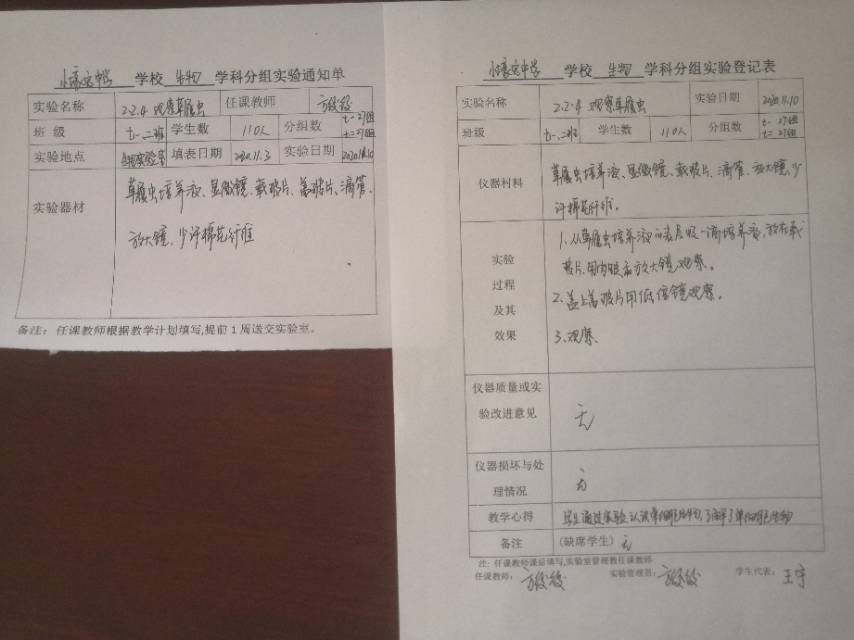 学校 生物 学科分组实验通知单
实验名称 2.2.4 观察草履虫 任课教师
班 级 七一、二班 学生数 110人 分组数 七一 27组 七二 27组
实验地点 生物实验室 填表日期 2020.11.3 实验日期 2020.11.10
实验器材 草履虫培养液、显微镜、载玻片、盖玻片、滴管、
放大镜、少许棉花纤维
备注: 任课教师根据教学计划填写,提前1周送交实验室。
学校 生物 学科分组实验登记表
实验名称 2.2.4 观察草履虫 实验日期 2020.11.10
班级 七一、二班 学生数 110人 分组数 七一 27组 七二 27组
仪器材料 草履虫培养液、显微镜、载玻片、滴管、放大镜、少
许棉花纤维。
实验过程及其效果
1、从草履虫培养液的表层吸一滴培养液,放在载
玻片,用肉眼或放大镜观察。
2、盖上盖玻片用低倍镜观察。
3、观察、
仪器质量或实验改进意见 无
仪器损坏与处理情况 无
教学心得 学生通过实验认识单细胞生物,了解了单细胞生物
备注 (缺席学生) 无
注: 任课教师课后填写,实验室管理教任课教师
任课教师: 实验管理员: 学生代表: 王宇